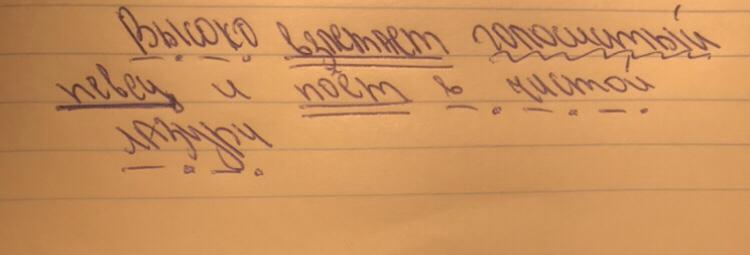 Высоко взлетает голосистый
певец и поёт в чистой
лазури